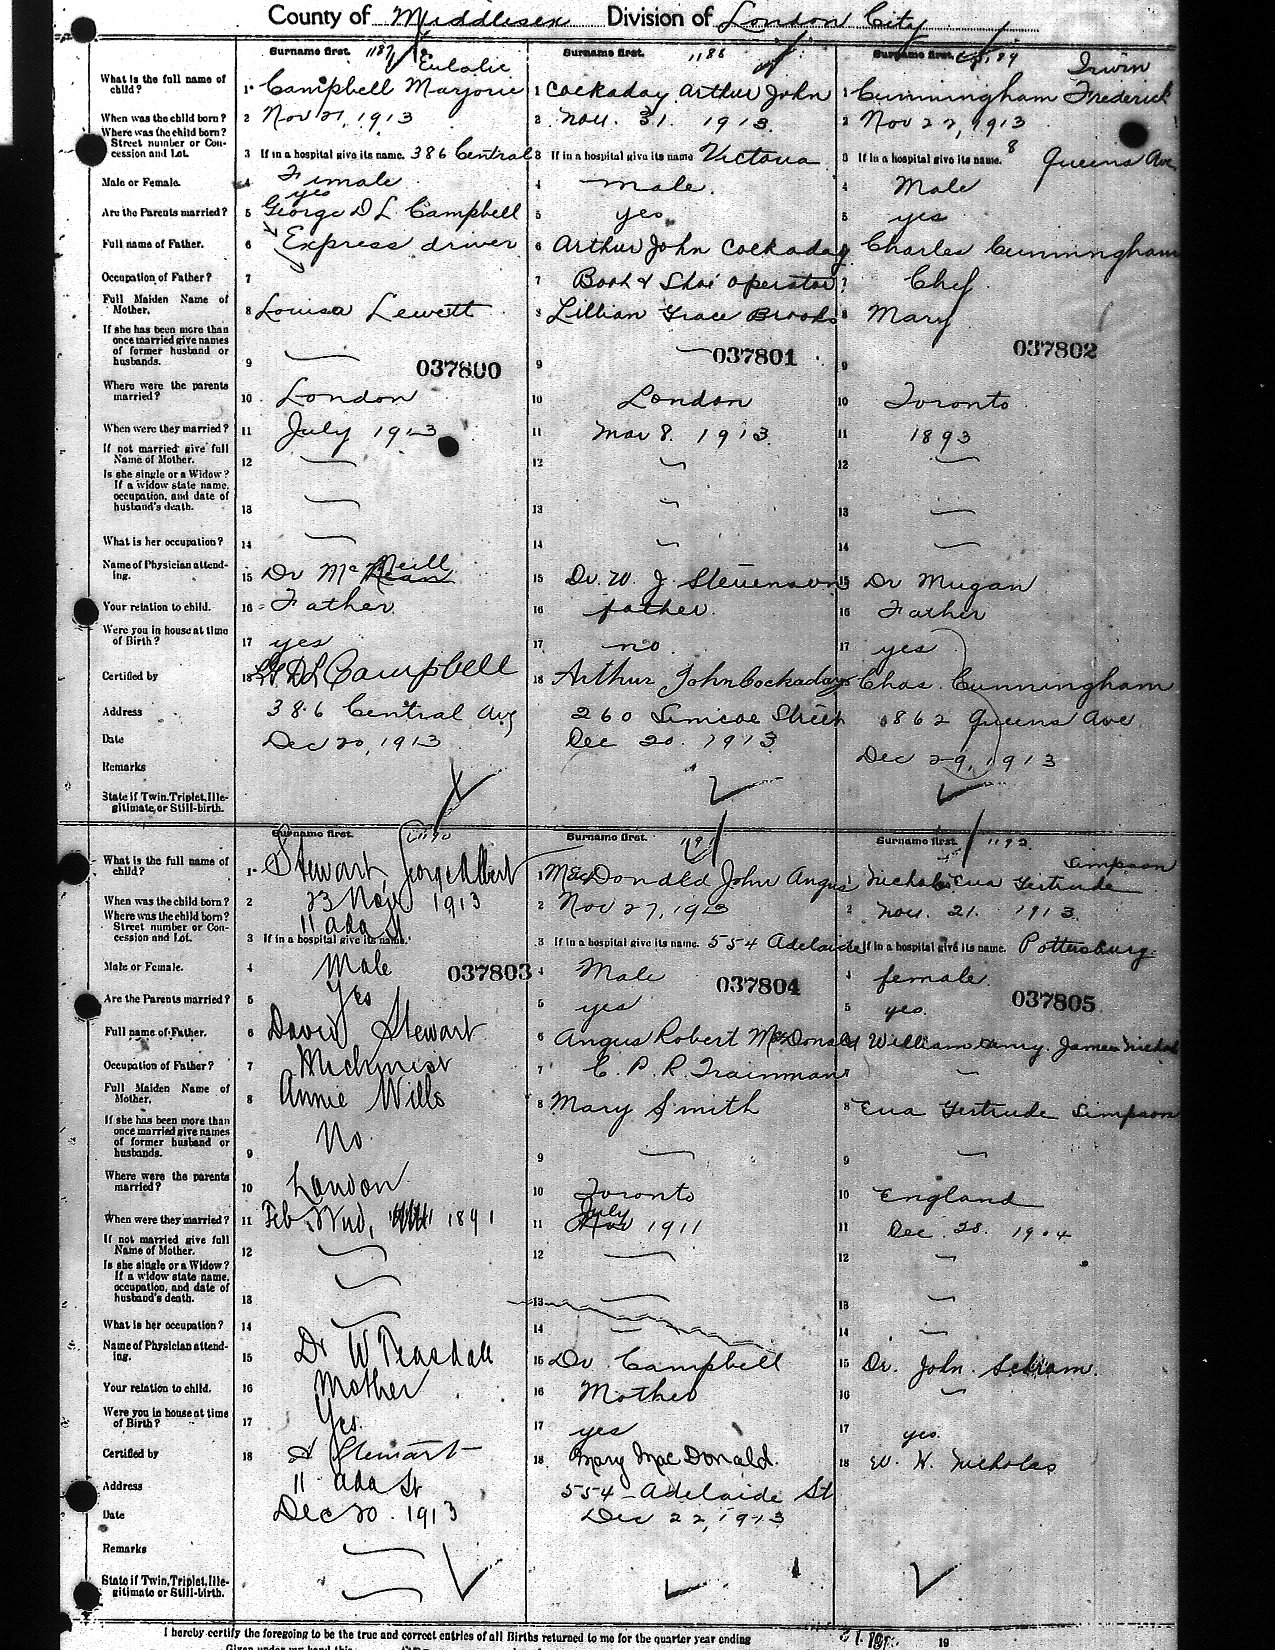 County of Middlesex Division of London City
Surname first. 1187
Surname first. 1188
Surname first. 1189
What is the full name of child?
1 Campbell Marjorie Eulalie
1 Cockaday Arthur John
1 Cunningham Frederick Irwin
When was the child born?
2 Nov 21, 1913
2 Nov. 31 1913.
2 Nov 22, 1913
Where was the child born? Street number or Concession and Lot.
3 If in a hospital give its name. 386 Central
3 If in a hospital give its name Victoria
3 If in a hospital give its name. 8 Queens Ave
Male or Female.
4 Female
4 male.
4 Male
Are the Parents married?
5 yes George D L Campbell
5 yes
5 yes
Full name of Father.
6 Express driver
6 Arthur John Cockaday
6 Charles Cunningham
Occupation of Father?
7
7 Boot & Shoe operator
7 Chef
Full Maiden Name of Mother.
8 Louisa Lewett
8 Lillian Grace Brooks
8 Mary
If she has been more than once married give names of former husband or husbands.
9 — 037800
9 — 037801
9 037802
Where were the parents married?
10 London
10 London
10 Toronto
When were they married?
11 July 1913
11 Mar 8. 1913.
11 1893
If not married give full Name of Mother.
12 —
12 —
12 —
Is she single or a Widow? If a widow state name, occupation, and date of husband's death.
13 —
13 —
13 —
What is her occupation?
14 —
14 —
14 —
Name of Physician attending.
15 Dr McNeill
15 Dr. W. J. Stevenson
15 Dr Mugan
Your relation to child.
16 Father
16 father.
16 Father
Were you in house at time of Birth?
17 yes
17 no
17 yes
Certified by
18 G D L Campbell
18 Arthur John Cockaday
18 Chas. Cunningham
Address
386 Central Ave
260 Simcoe Street
862 Queens Ave.
Date
Dec 20, 1913
Dec 20. 1913
Dec 29, 1913
Remarks
State if Twin, Triplet, Illegitimate, or Still-birth.
Surname first. 1190
Surname first. 1191
Surname first. 1192
What is the full name of child?
1 Stewart, George Albert
1 MacDonald John Angus
1 Nicholas Eva Gertrude Simpson
When was the child born?
2 23 Nov 1913
2 Nov 27, 1913
2 Nov. 21. 1913.
Where was the child born? Street number or Concession and Lot.
11 Ada St
3 If in a hospital give its name.
3 If in a hospital give its name. 554 Adelaide
If in a hospital give its name. Pottersburg.
Male or Female.
4 Male 037803
4 Male 037804
4 female. 037805
Are the Parents married?
5 Yes
5 yes
5 yes.
Full name of Father.
6 David Stewart
6 Angus Robert McDonald
William Henry James Nichol
Occupation of Father?
7 Michinist
7 C. P. R. Trainman
—
Full Maiden Name of Mother.
8 Annie Wills
8 Mary Smith
8 Eva Gertrude Simpson
If she has been more than once married give names of former husband or husbands.
9 No.
9 —
9 —
Where were the parents married?
10 London
10 Toronto
10 England
When were they married?
11 Feb. 1891
11 July 1911
11 Dec. 28. 1904
If not married give full Name of Mother.
12 —
12 —
12 —
Is she single or a Widow? If a widow state name, occupation, and date of husband's death.
13 —
13 —
13 —
What is her occupation?
14 —
14 —
14 —
Name of Physician attending.
15 Dr W Teasdall
15 Dr Campbell
15 Dr. John Schram.
Your relation to child.
16 Mother
16 Mother
16 —
Were you in house at time of Birth?
17 Yes.
17 yes
17 yes.
Certified by
18 A Stewart
18 Mary MacDonald.
18 W. H. Nicholas
Address
11 Ada St
554 Adelaide St
Date
Dec 20. 1913
Dec 22, 1913
Remarks
State if Twin, Triplet, Illegitimate or Still-birth.
I hereby certify the foregoing to be the true and correct entries of all Births returned to me for the quarter year ending 19